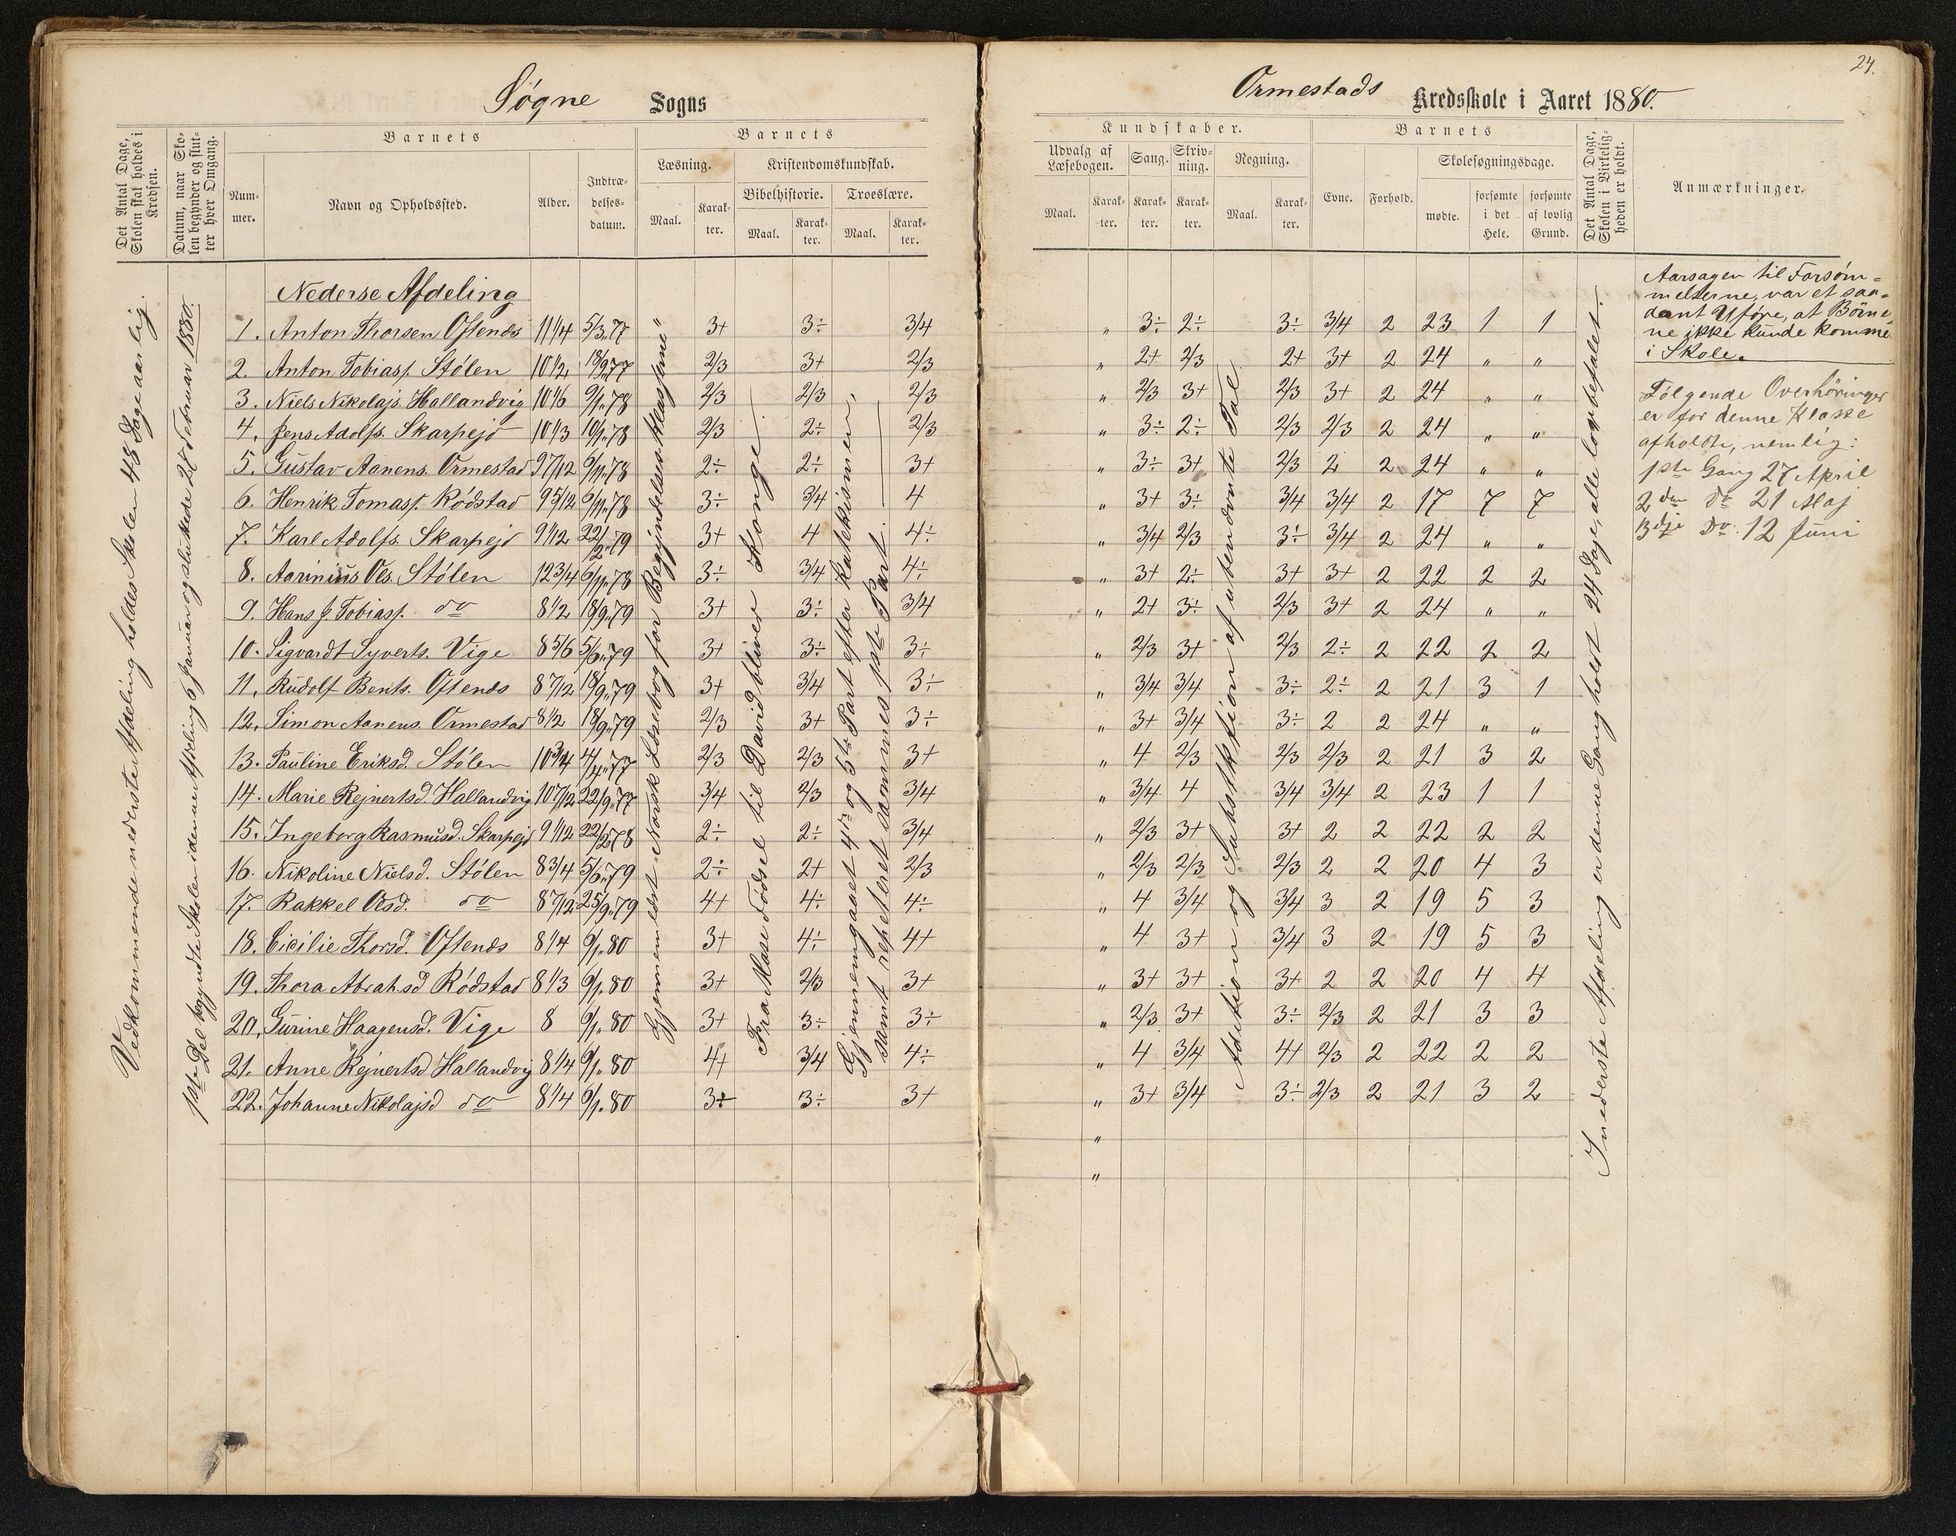 24.
Søgne Sogns
Ormestads Kredsskole i Aaret 1880.
Det Antal Dage, Skolen skal holdes i Kredsen.
Datum, naar Skolen begynder og slutter hver Omgang.
Barnets
Nummer.
Navn og Opholdssted.
Alder.
Indtrædelsesdatum.
Barnets
Læsning.
Maal.
Karakter.
Kristendomskundskab.
Bibelhistorie.
Maal.
Karakter.
Troeslære.
Maal.
Karakter.
Kundskaber.
Udvalg af Læsebogen.
Maal.
Karakter.
Sang.
Karakter.
Skrivning.
Karakter.
Regning.
Maal.
Karakter.
Barnets
Evne.
Forhold.
Skolesøgningsdage.
mødte.
forsømte i det Hele.
forsømte af lovlig Grund.
Det Antal Dage, Skolen i Virkeligheden er holdt.
Anmærkninger.
Vedkommende nederste Afdeling holdes Skolen 48 Dage aarlig.
1ste Del begyndte Skolen i denne Afdeling 6 Januar og sluttede 27 Februar 1880.
Gjennemlæst Norsk Læsebog for Begyndelsesklasserne"
Fra Mose Fødsel til David bliver Konge.
Gjennemgaaet 4de og 5te Part efter Katekismen,
samt repeteret sammes 1ste Part.
Addition og Substraktion af ubenævnte Tal.
I nederste Afdeling er denne Gang holdt 24 Dage, alle lovbefalet.
Nederse Afdeling
1. Anton Thorsen Oftenæs 11 1/4 5/3.77 3+ 3÷ 3/4 " 3÷ 2÷ 3÷ 3/4 2 23 1 1
2. Anton Tobiass. Stølen 10 1/2 18/9.77 2/3 3+ 2/3 " 2+ 2/3 2+ 3+ 2 24 " "
3. Niels Nikolajs. Hallandvig 10 1/6 9/1.78 2/3 2/3 2/3 " 2/3 3+ 2/3 3+ 2 24 " "
4. Jens Adolfs. Skarpejd 10 1/3 10/1.78 2/3 2÷ 2/3 " 3÷ 2÷ 2/3 2/3 2 24 " "
5. Gustav Aanens. Ormestad 9 7/12 6/11.78 2÷ 2÷ 3+ " 3÷ 3+ 2/3 2 2 24 " "
6. Henrik Tomass. Rødstad 9 5/12 6/11.78 3÷ 3/4 4 " 3+ 3÷ 3/4 3/4 2 17 7 7
7. Karl Adolfs. Skarpejd 9 1/12 22/2.79 3+ 4 4÷ " 3/4 2/3 3÷ 3/4 2 24 " "
8. Aarinius Ols. Stølen 12 3/4 6/11.78 3÷ 3/4 4÷ " 3+ 2÷ 3+ 3+ 2 22 2 2
9. Hans J. Tobiass. do 8 1/2 18/9.79 3+ 3÷ 3/4 " 2+ 3÷ 2/3 3+ 2 24 " "
10. Sigvardt Syverts. Vige 8 5/6 5/6.79 3+ 3÷ 3÷ " 2/3 3+ 2/3 2÷ 2 22 2 2
11. Rudolf Bents. Oftenæs 8 7/12 18/9.79 3+ 3/4 3÷ " 3/4 3/4 3÷ 2÷ 2 21 3 1
12. Simon Aanens. Ormestad 8 1/2 18/9.79 2/3 3+ 3÷ " 3+ 3/4 3÷ 2 2 24 " "
13. Pauline Eriksd. Stølen 10 3/4 4/4.77 2/3 2/3 3+ " 4 2/3 2/3 2/3 2 21 3 2
14. Marie Rejnertsd. Hallandvig 10 7/12 22/9.77 3/4 2/3 3/4 " 3/4 4 3/4 3/4 2 23 1 1
15. Ingeborg Rasmusd. Skarpejd 9 1/12 22/2.78 2÷ 2÷ 3/4 " 2/3 3+ 3+ 2 2 22 2 2
16. Nikoline Nielsd. Stølen 8 3/4 5/6.79 2÷ 2+ 2/3 " 2/3 2/3 2/3 2 2 20 4 3
17. Rakkel Olsd. do 8 7/12 25/9.79 4+ 4÷ 4÷ " 4 3/4 3/4 3 2 19 5 3
18. Cicilie Thorsd. Oftenæs 8 1/4 9/1.80 3+ 4÷ 4+ " 4 3+ 3/4 3 2 19 5 3
19. Thora Abrahsd Rødstad 8 1/3 9/1.80 3+ 2/3 3+ " 3+ 3+ 3+ 2 2 20 4 4
20. Gurine Haagensd. Vige 8 9/1.80 3+ 3÷ 3÷ " 2/3 3+ 3÷ 2/3 2 21 3 3
21. Anne Rejnertsd Hallandvig 8 1/4 9/1.80 4+ 3/4 4÷ " 4 3/4 4+ 2/3 2 22 2 2
22. Johanne Nikolajsd do 8 1/4 9/1.80 3÷ 3÷ 3+ " 3+ 3/4 3÷ 2/3 2 21 3 2
"
"
Aarsagen til Forsøm=
melserne, var et saa=
dant Uføre, at Børne=
ne ikke kunde komme
i Skole.
Følgende Overhøringer
er for denne Klasse
afholdte, nemlig:
1ste Gang 27 April
2den do 21 Maj
3dje Do. 12 Juni